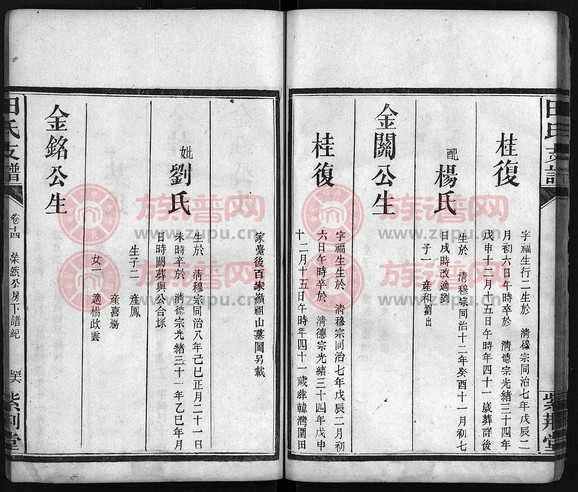 桂復
字福生行二生於 清穆宗同治七年戊辰二
月初六日午時卒於 清德宗光緒三十四年
戊申十二月十五日午時年四十一歲葬詳後
配
楊氏
生於 清穆宗同治十二年癸酉十一月初七
日戌時改適劉
子一 產和劉出
金關公生
桂復
字福生生於 清穆宗同治七年戊辰二月初
六日午時卒於 清德宗光緒三十四年戊申
十二月十五日午時年四十一歲葬韓灣圍田
家臺後百家嶺祖山墓圖另載
妣
劉氏
生於 清穆宗同治八年己巳正月二十一日
未時卒於 清德宗光緒三十一年乙巳年月
日時闕葬與公合塚
生子二 產鳳
產嘉殤
女一 適楊政雲
金銘公生
田氏支譜
卷十四
紫荆堂
族谱网
www.zupu.cn